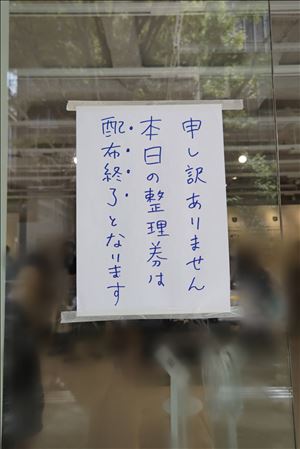 申し訳ありません
本日の整理券は
配布終了となります